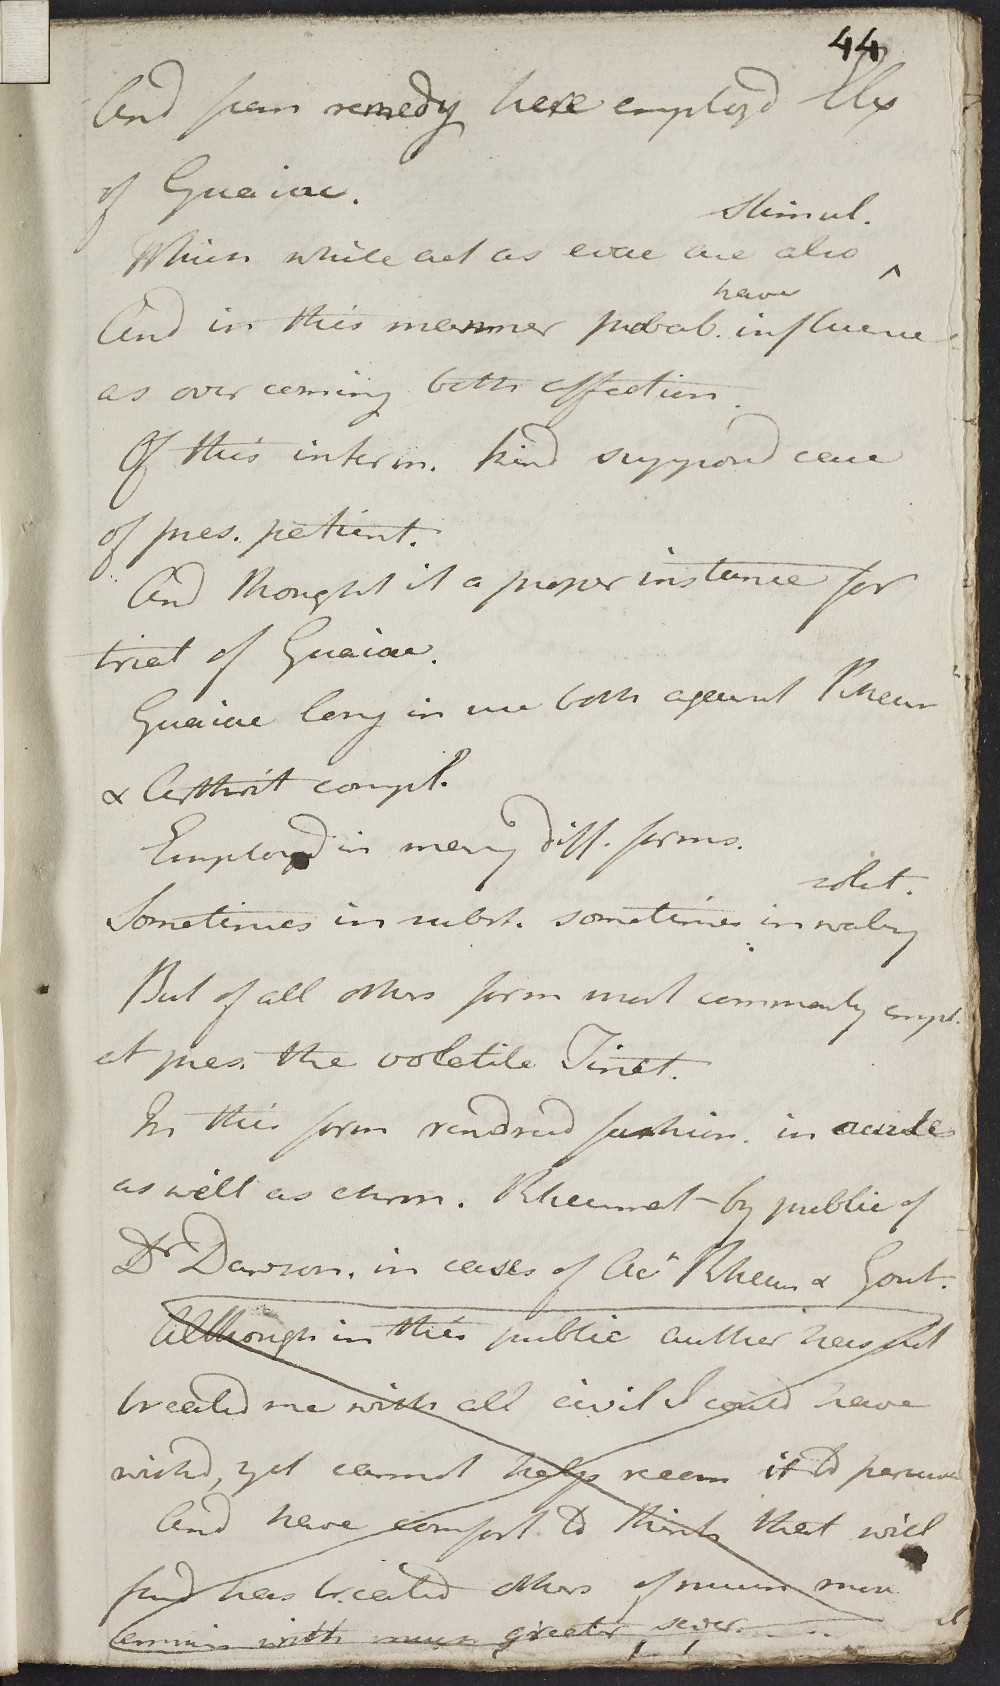 44
And from remedy here employd Elix
of Guaiac.
stimul.
Which while act as evac are also ^
have
And in this manner probab. influence
as over coming both affection.
Of this interm. kind supposd case
of pres. patient.
And thought it a proper instance for
trial of Guaiac.
Guaiac long in use both against Rheum
& Arthrit compl.
Employd in many diff. forms.
solut.
Sometimes in subst. sometimes in watery
But of all others form most commonly empl.
at pres. the volatile Tinct.
In this form rendred fashion. in acute
as well as chron. Rheumat by public of
Dr Dawson. in cases of Ac. Rheum & Gout.
Although in this public author has not
treated me with all civil I could have
wishd, yet cannot help recom it to perusal
And have comfort to think that will
find has treated others of much more
eminen with much greater sever.